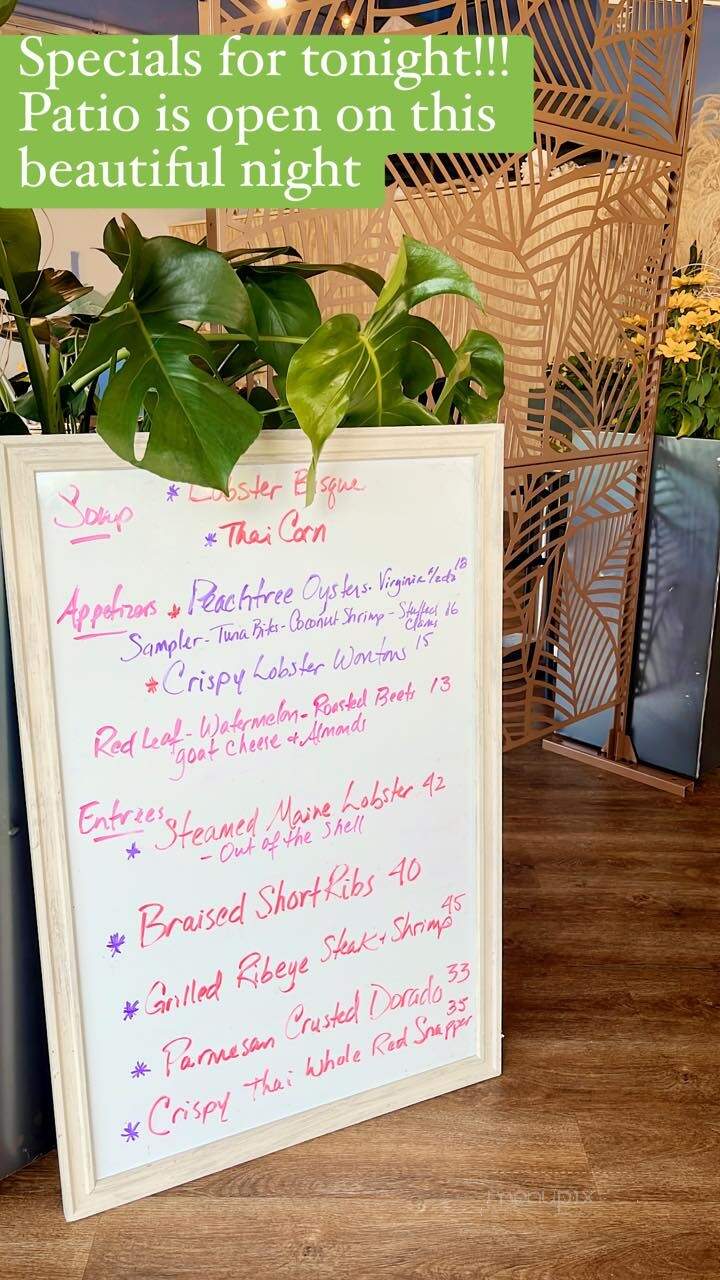 Specials for tonight!!!
Patio is open on this
beautiful night
Soup * Lobster Bisque
* Thai Corn
Appetizers * Peachtree Oysters - Virginia 18
Sampler - Tuna Bites - Coconut Shrimp - Stuffed 16
Clams
* Crispy Lobster Wontons 15
Red Leaf - Watermelon - Roasted Beets 13
goat cheese + Almonds
Entrees
* Steamed Maine Lobster 42
- Out of the shell
* Braised Short Ribs 40
* Grilled Ribeye Steak + Shrimp 45
* Parmesan Crusted Dorado 33
* Crispy Thai Whole Red Snapper 35
menupix